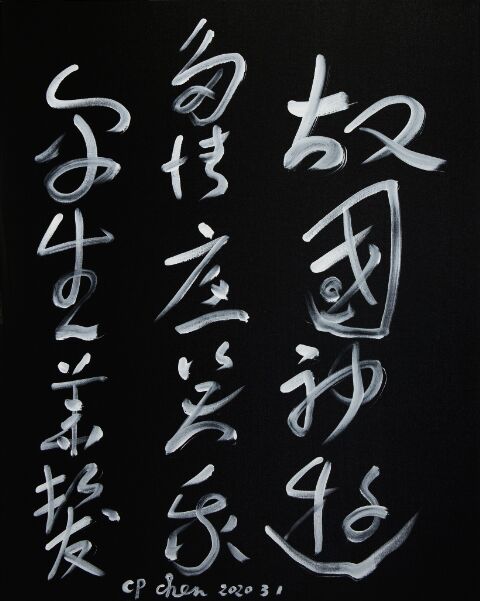 故國神遊
多情應笑我
早生華髮
CP Chen 2020 3 1